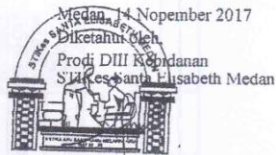 Medan, 14 Nopember 2017
Diketahui Oleh,
Prodi DIII Kebidanan
STIKes Santa Elisabeth Medan
STIKes SANTA ELISABETH MEDAN